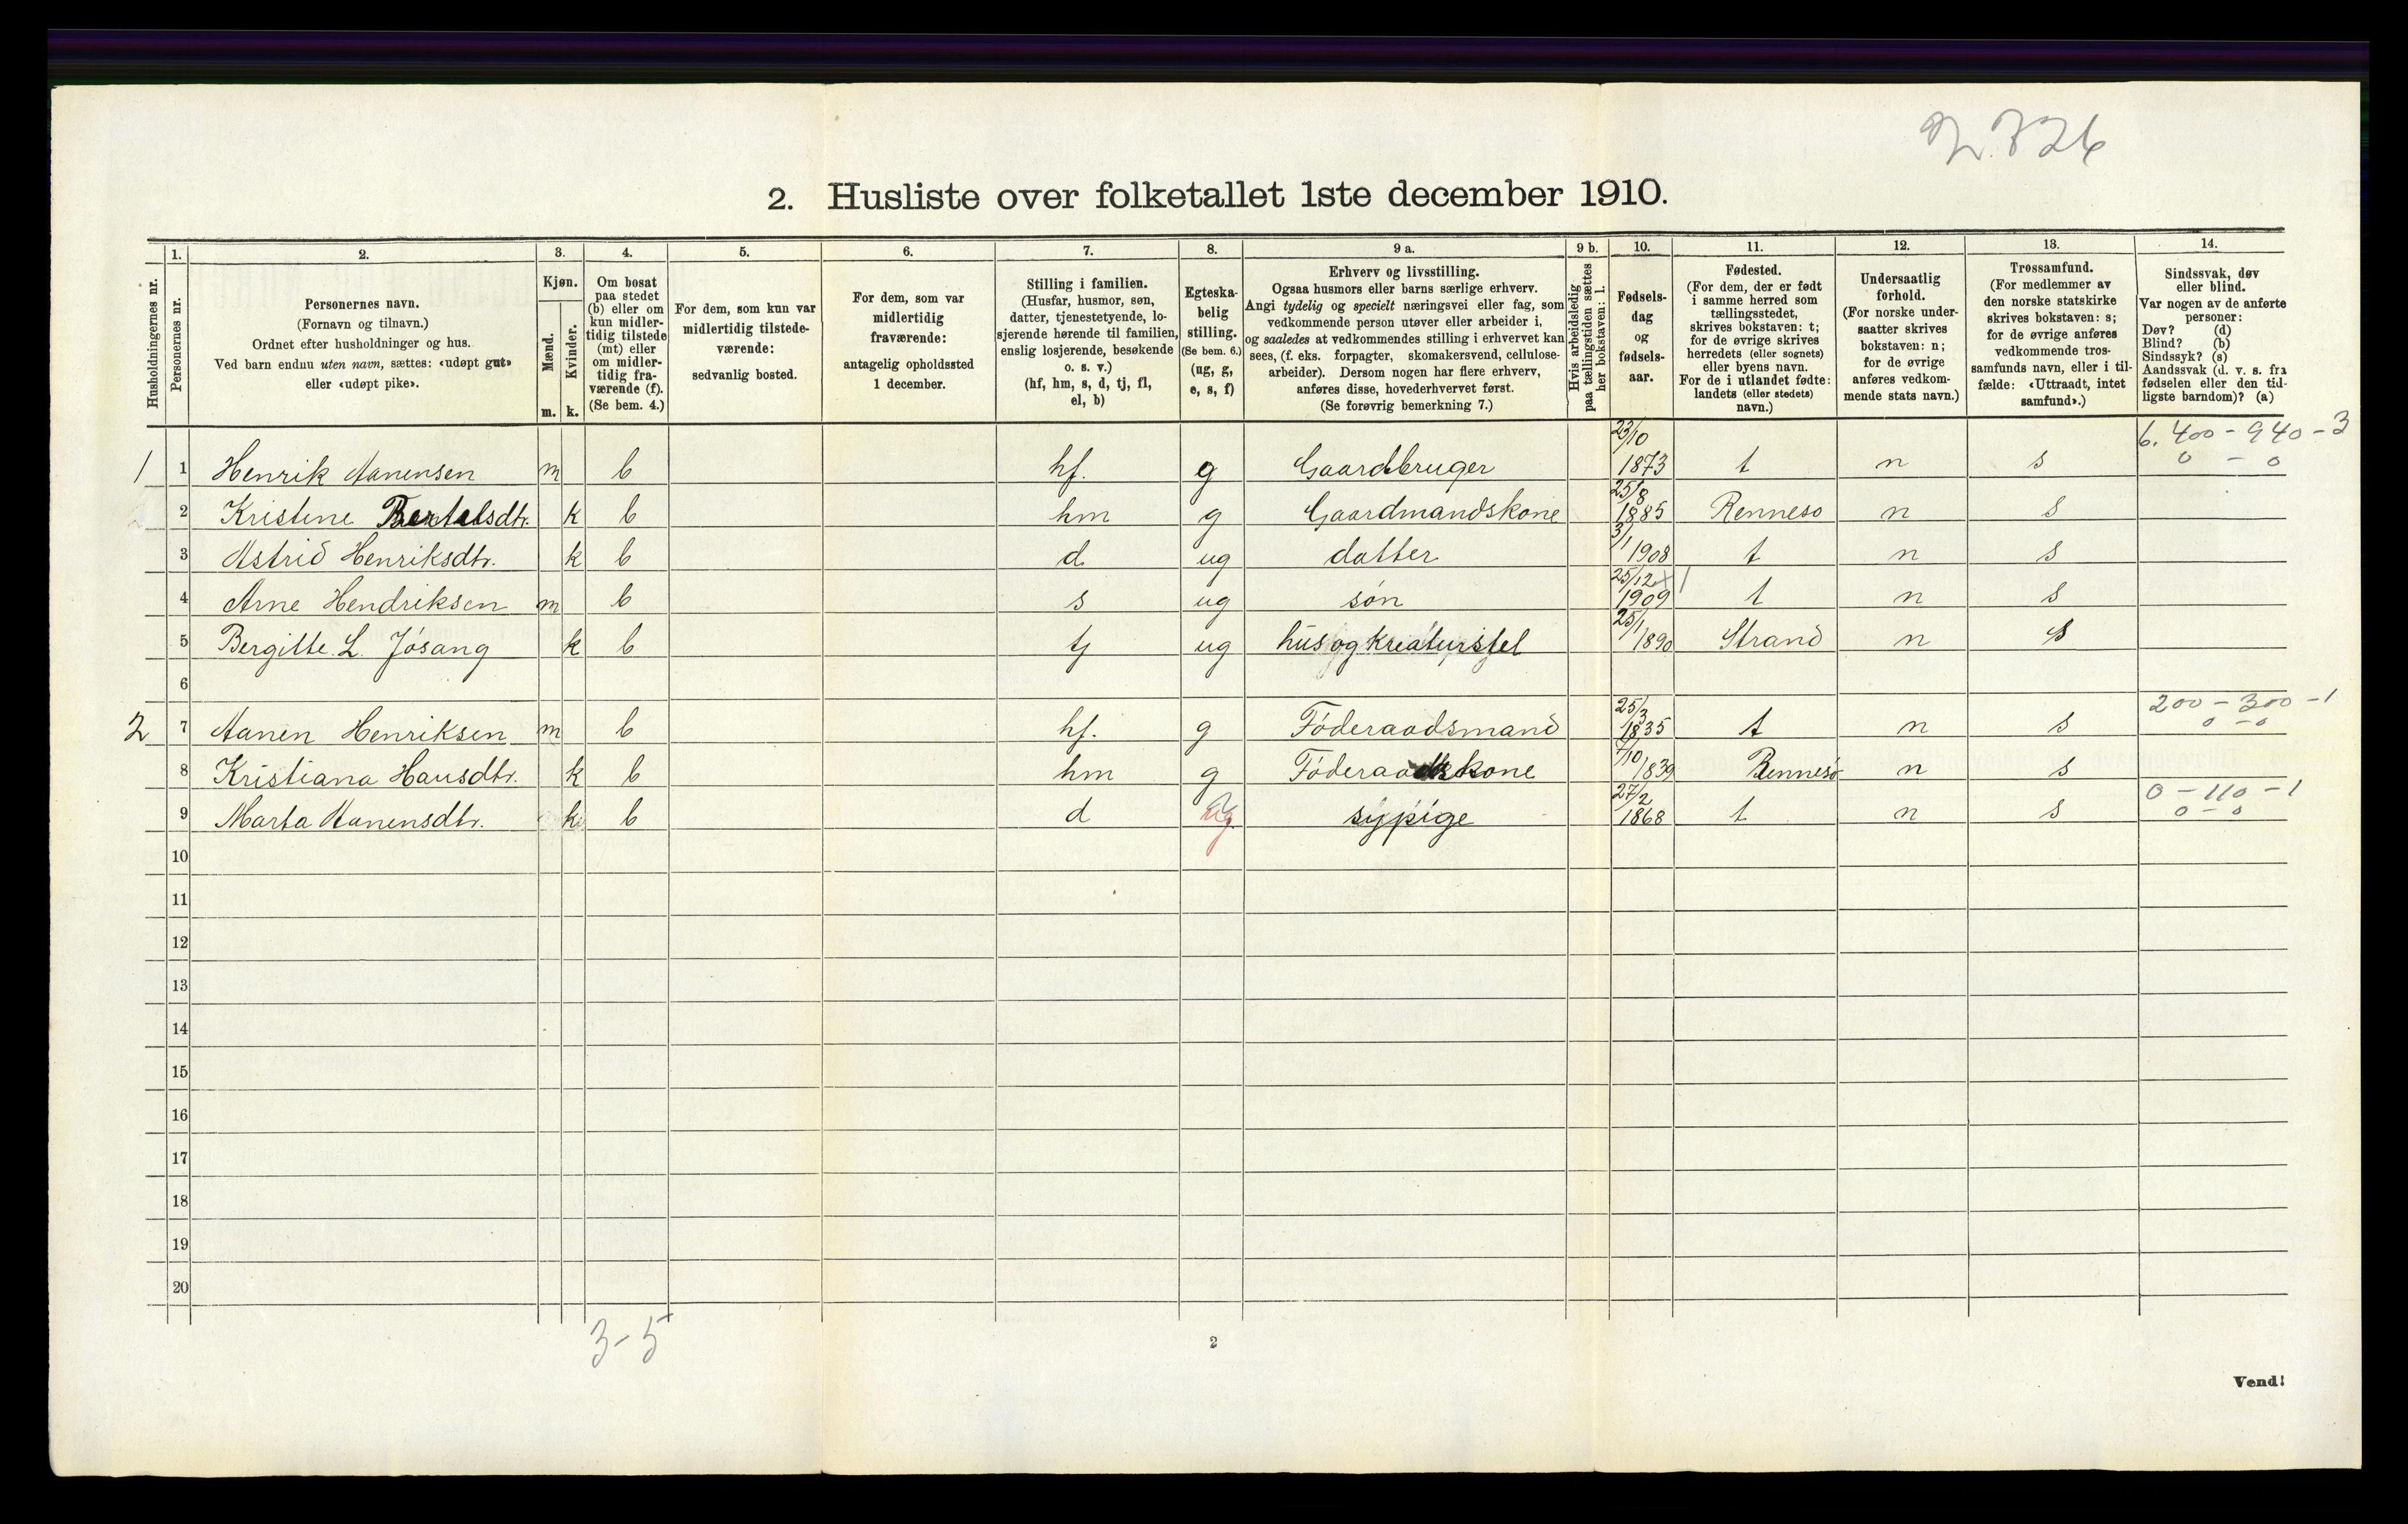 2. Husliste over folketallet 1ste december 1910.
Husholdningernes nr.
1. Personernes nr.
2. Personernes navn.
(Fornavn og tilnavn.)
Ordnet efter husholdninger og hus.
Ved barn endnu uten navn, sættes: «udøpt gut»
eller «udøpt pike».
3. Kjøn.
Mænd. m.
Kvinder. k.
4. Om bosat
paa stedet
(b) eller om
kun midler-
tidig tilstede
(mt) eller
om midler-
tidig fra-
værende (f).
(Se bem. 4.)
5. For dem, som kun var
midlertidig tilstede-
værende:
sedvanlig bosted.
6. For dem, som var
midlertidig
fraværende:
antagelig opholdssted
1 december.
7. Stilling i familien.
(Husfar, husmor, søn,
datter, tjenestetyende, lo-
sjerende hørende til familien,
enslig losjerende, besøkende
o. s. v.)
(hf, hm, s, d, tj, fl,
el, b)
8. Egteska-
belig
stilling.
(Se bem. 6.)
(ug, g,
e, s, f)
9 a. Erhverv og livsstilling.
Ogsaa husmors eller barns særlige erhverv.
Angi tydelig og specielt næringsvei eller fag, som
vedkommende person utøver eller arbeider i,
og saaledes at vedkommendes stilling i erhvervet kan
sees, (f. eks. forpagter, skomakersvend, cellulose-
arbeider). Dersom nogen har flere erhverv,
anføres disse, hovederhvervet først.
(Se forøvrig bemerkning 7.)
9 b. Hvis arbeidsledig
paa tællingstiden sættes
her bokstaven: l.
10. Fødsels-
dag
og
fødsels-
aar.
11. Fødested.
(For dem, der er født
i samme herred som
tællingsstedet,
skrives bokstaven: t;
for de øvrige skrives
herredets (eller sognets)
eller byens navn.
For de i utlandet fødte:
landets (eller stedets)
navn.)
12. Undersaatlig
forhold.
(For norske under-
saatter skrives
bokstaven: n;
for de øvrige
anføres vedkom-
mende stats navn.)
13. Trossamfund.
(For medlemmer av
den norske statskirke
skrives bokstaven: s;
for de øvrige anføres
vedkommende tros-
samfunds navn, eller i til-
fælde: «Uttraadt, intet
samfund».)
14. Sindssvak, døv
eller blind.
Var nogen av de anførte
personer:
Døv? (d)
Blind? (b)
Sindssyk? (s)
Aandssvak (d. v. s. fra
fødselen eller den tid-
ligste barndom)? (a)
1 1 Henrik Aanensen m b hf. g Gaardbruger 23/10 1873 t n s 6.400 - 940 - 3
0 - 0
2 Kristine Bertelsdtr. k b hm g Gaardmandskone 25/8 1885 Renneso n s
3 Astrid Henriksdtr. k b d ug datter 3/1 1908 t n s
4 Arne Hendriksen m b s ug søn 25/12 1909 t n s
5 Bergitte L. Jósang k b tj ug hus og kreaturstel 25/1 1890 Strand n s
6
2 7 Aanen Henriksen m b hf. g Fóderaadsmand 25/3 1835 t n s 200 - 300 - 1
0 - 0
8 Kristiana Hansdtr. k b hm g Fóderaadskone 7/10 1839 Rennesó n s
9 Marta Aanensdtr. k b d ug. sypige 27/2 1868 t n s 0 - 110 - 1
0 - 0
10
11
12
13
14
15
16
17
18
19
20
3-5
2
Vend!